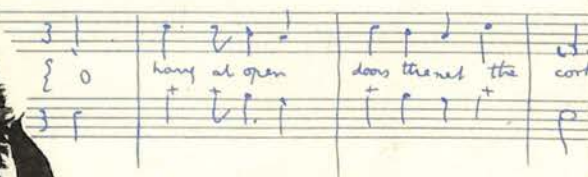 O hang at open doors the net the cork